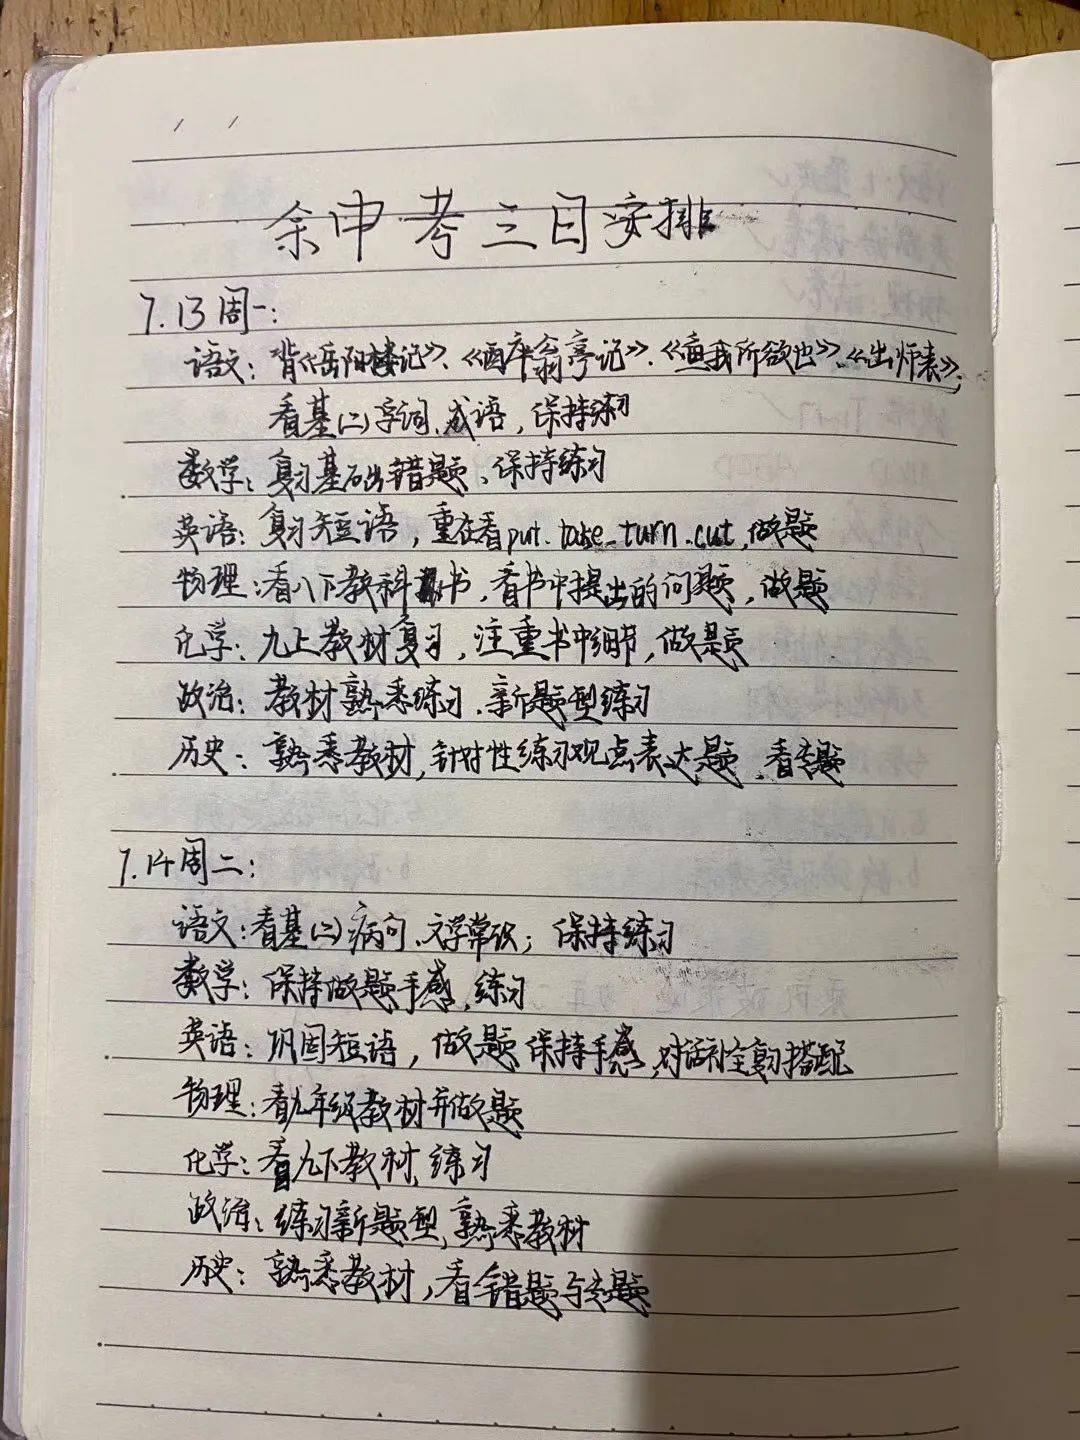 余中考三日安排
7.13周一:
语文:背《岳阳楼记》、《醉翁亭记》、《鱼我所欲也》、《出师表》,
看基(二)字词、成语,保持练习
数学:复习基础出错题、保持练习
英语:复习短语,重在看put.take.turn.cut,做题
物理:看八下教科书,看书中提出的问题,做题
化学:九上教材复习,注重书中细节,做题
政治:教材熟悉练习、新题型练习
历史:熟悉教材,针对性练习观点表达题、看专题
7.14周二:
语文:看基(二)病句、文学常识;保持练习
数学:保持做题手感,练习
英语:巩固短语,做题保持手感,对话补全复习搭配
物理:看九年级教材并做题
化学:看九下教材,练习
政治:练习新题型,熟悉教材
历史:熟悉教材,看错题与专题